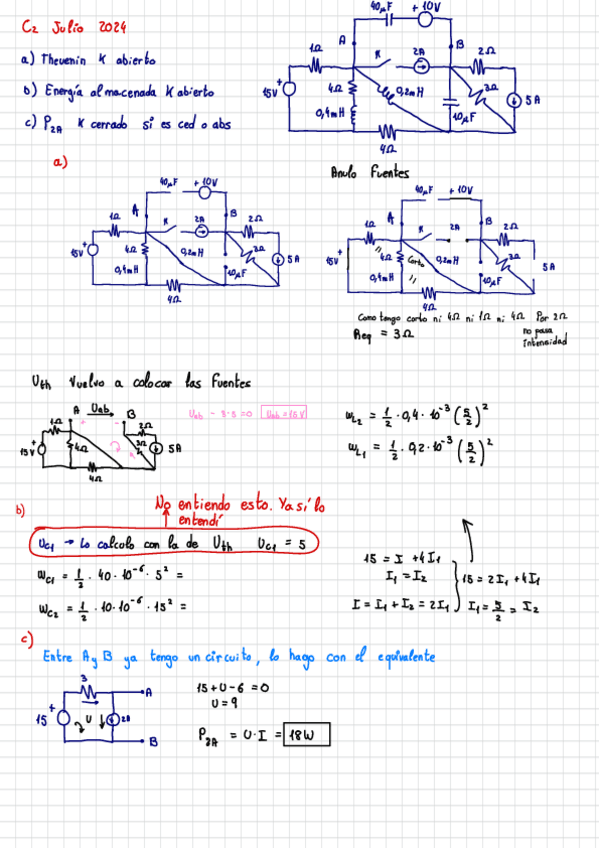 C2 Julio 2024
a) Thevenin K abierto
b) Energía almacenada K abierto
c) P2A K cerrado si es ced o abs
40μF + 10V
A B
K 2A
1Ω 2Ω
15V + 4Ω 0,2mH 3Ω 5A
0,4mH 10μF
4Ω
a)
40μF + 10V
A B
K 2A
1Ω 2Ω
15V + 4Ω 0,2mH 3Ω 5A
0,4mH 10μF
4Ω
Anulo Fuentes
40μF + 10V
A B
K 2A
1Ω 2Ω
15V + 4Ω Corto 0,2mH 3Ω 5A
0,4mH 10μF
4Ω
Como tengo corto ni 4Ω ni 1Ω ni 4Ω Por 2Ω
no pasa
intensidad
Req = 3Ω
Uth Vuelvo a colocar las Fuentes
A Uab B
1Ω + - 2Ω
15V + 4Ω 3Ω 5A
4Ω
Uab - 3·5=0 Uab=15V
WL2 = 1/2 · 0,4 · 10^-3 (5/2)^2
WL1 = 1/2 · 0,2 · 10^-3 (5/2)^2
b)
No entiendo esto. Ya sí lo
entendí
UC1 → Lo calculo con la de Uth UC1 = 5
WC1 = 1/2 · 40 · 10^-6 · 5^2 =
WC2 = 1/2 · 10·10^-6 · 15^2 =
15 = I + 4I1
I1 = I2
I = I1 + I2 = 2I1
15 = 2I1 + 4I1
I1 = 5/2 = I2
c)
Entre A y B ya tengo un circuito, lo hago con el equivalente
3
A
15 + U 2A
B
15 + U - 6 = 0
U = 9
P2A = U·I = 18W